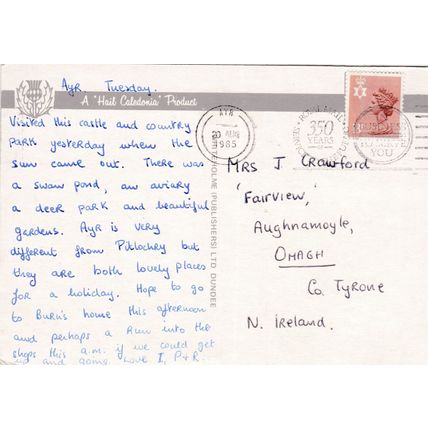 Ayr. Tuesday.
A "Hail Caledonia" Product
Visited this castle and country
park yesterday when the
sun came out. There was
a swan pond, an aviary
a deer park and beautiful
gardens. Ayr is very
different from Pitlochry but
they are both lovely places
for a holiday. Hope to go
to Burn's home this afternoon
and perhaps a run into the
shops this a.m. if we could get
up and going. Love I, P+R.
WHITEHOLME (PUBLISHERS) LTD DUNDEE
AYR
20 AUG
1985
350
YEARS
YOU
Mrs J Crawford
'Fairview,'
Aughnamoyle,
OMAGH
Co. Tyrone
N. Ireland.